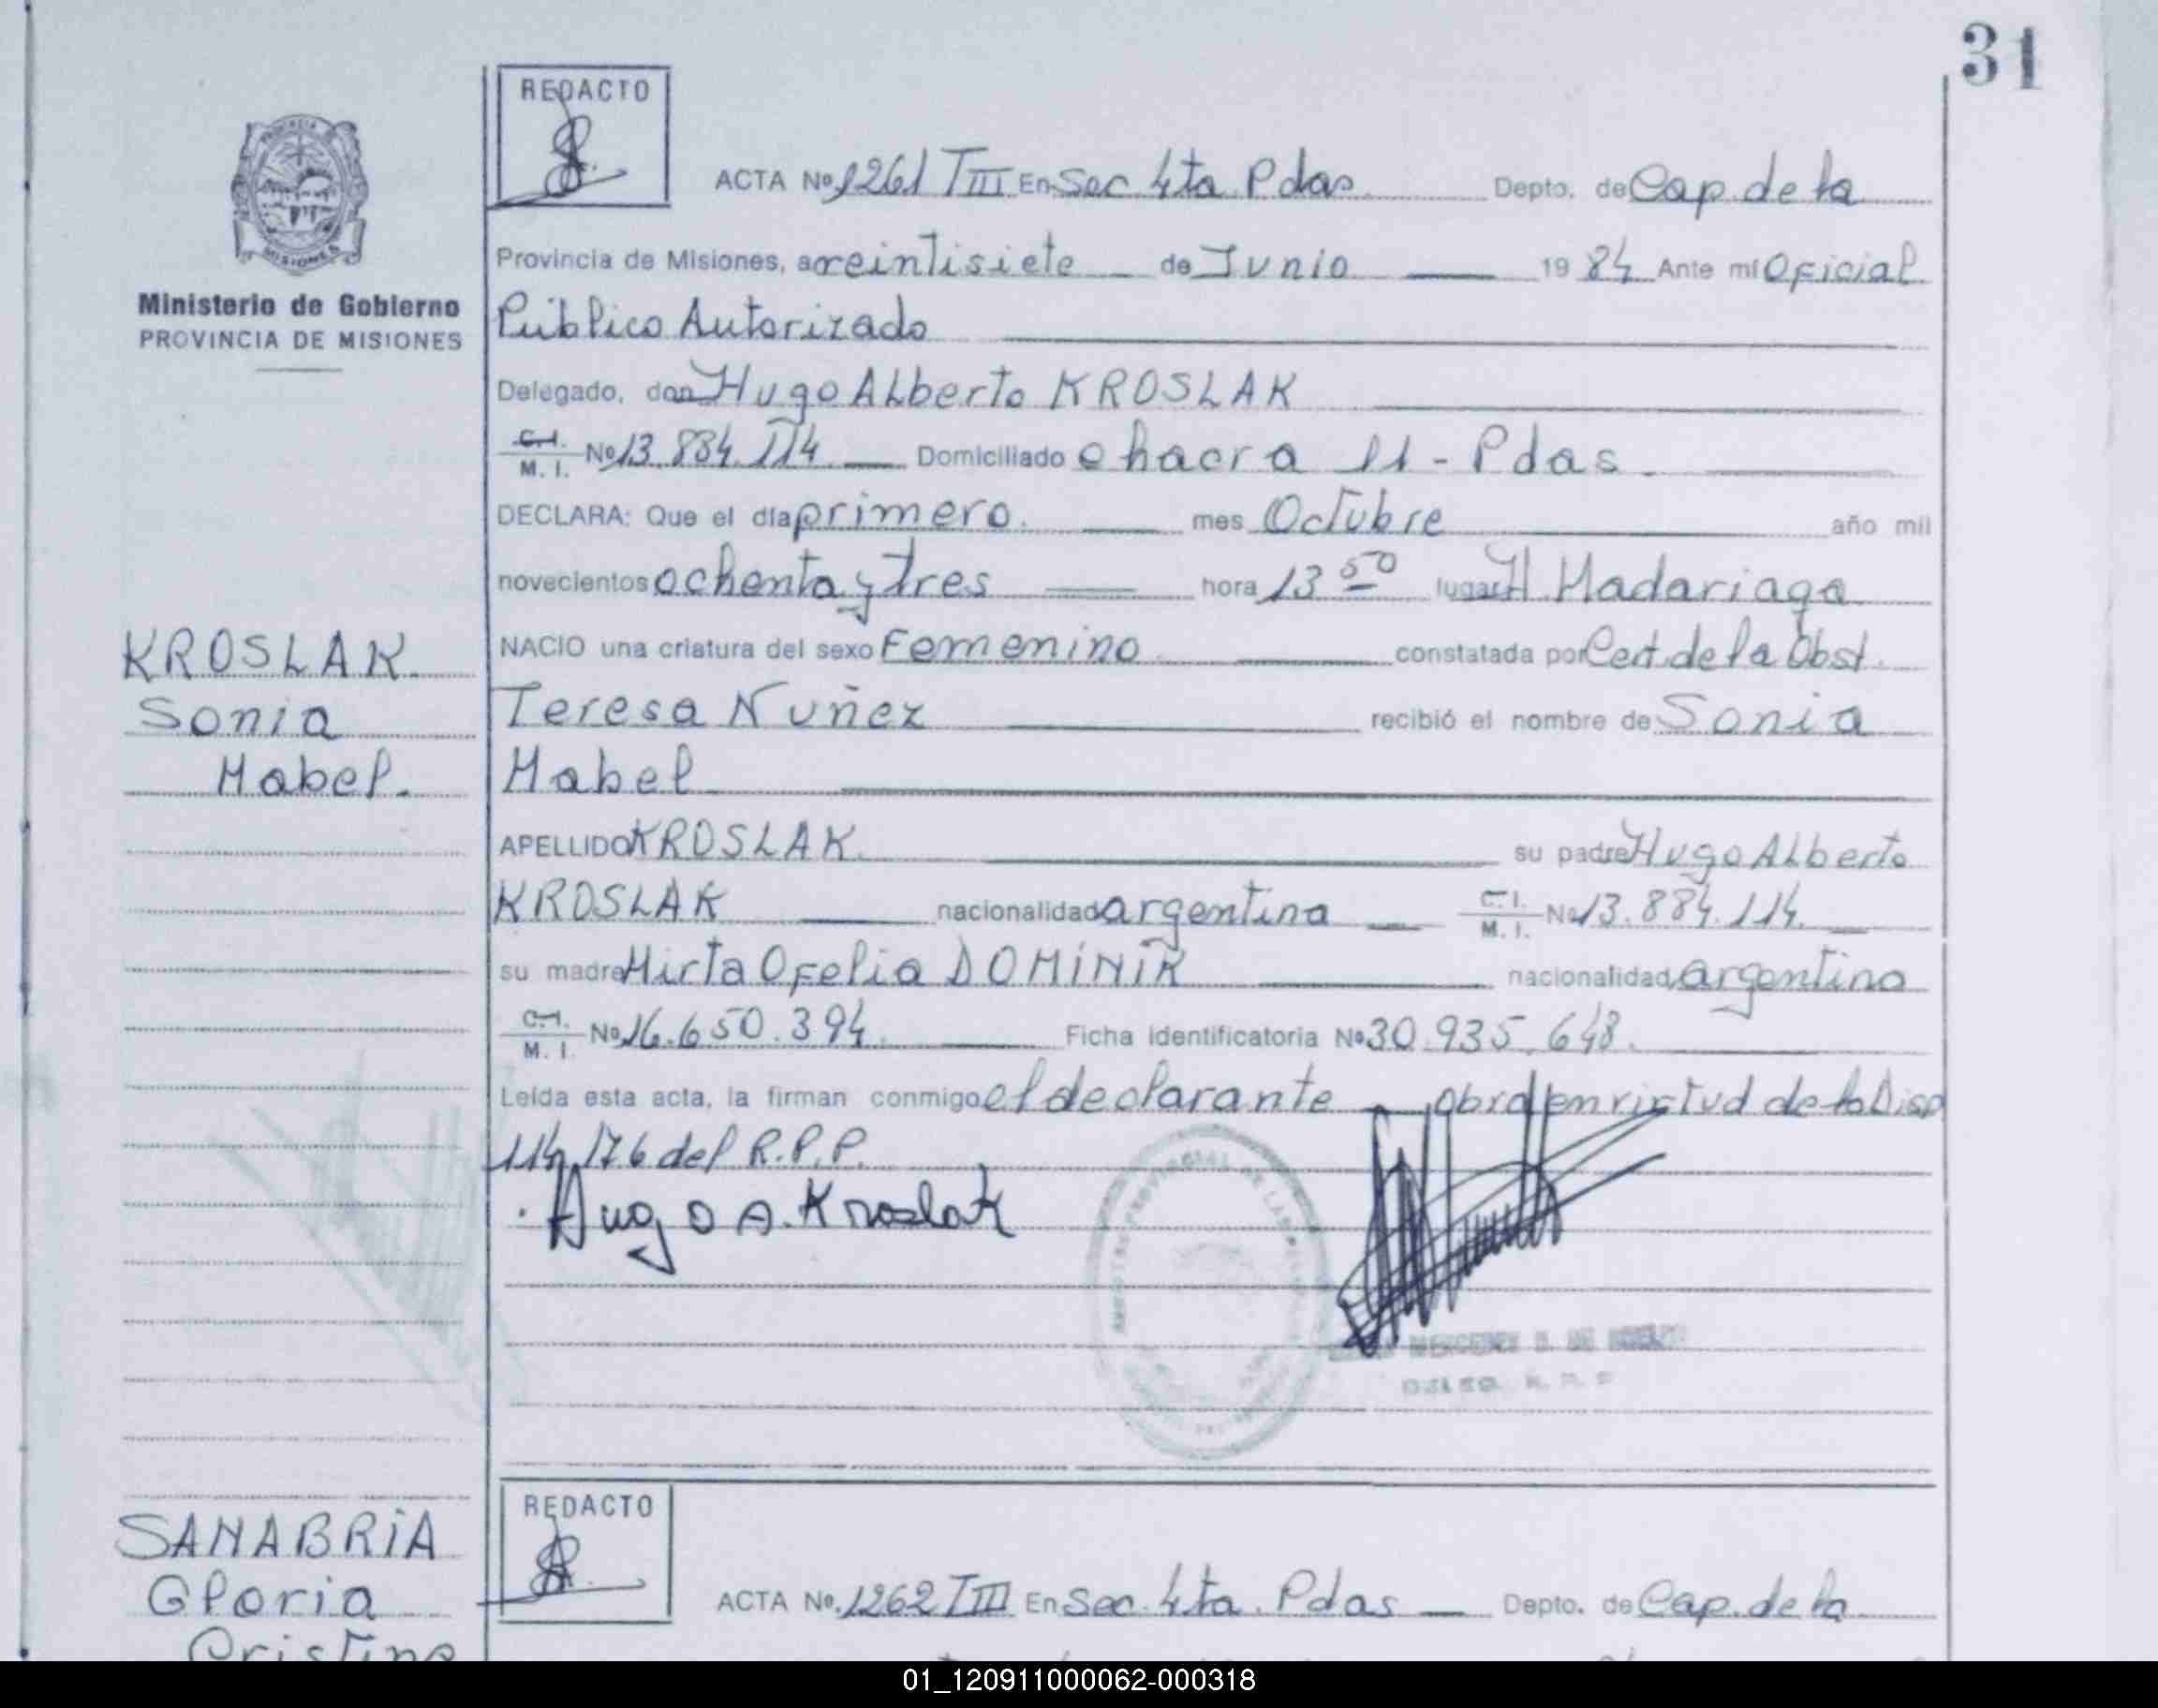 31
REDACTO
ACTA Nº 1261 TIII En Sec 4ta Pdas Depto. de Cap. de la
Provincia de Misiones, a veintisiete de Junio 19 84 Ante mi Oficial
Ministerio de Gobierno
PROVINCIA DE MISIONES
Público Autorizado
Delegado, don Hugo Alberto KROSLAK
C.I. M.I. Nº 13.884.114 Domiciliado chacra 11 - Pdas.
DECLARA: Que el día primero. mes Octubre año mil
novecientos ochenta y tres hora 13 50 lugar H. Madariaga
KROSLAK.
NACIO una criatura del sexo Femenino constatada por Cert. de la Obst.
Sonia
Teresa Nuñez recibió el nombre de Sonia
Mabel.
Mabel
APELLIDO KROSLAK. su padre Hugo Alberto
KROSLAK nacionalidad argentina C.I. M.I. Nº 13.884.114.
su madre Mirta Ofelia DOMINIK nacionalidad argentina
C.I. M.I. Nº 16.650.394. Ficha Identificatoria Nº 30.935.648.
Leída esta acta, la firman conmigo el declarante obra en virtud de la Disp
114/76 del R.P.P.
Hugo A. Kroslak
REDACTO
SANABRIA
Gloria
ACTA Nº 1262 TIII En Sec. 4ta. Pdas Depto. de Cap. de la
Cristina
01_120911000062-000318